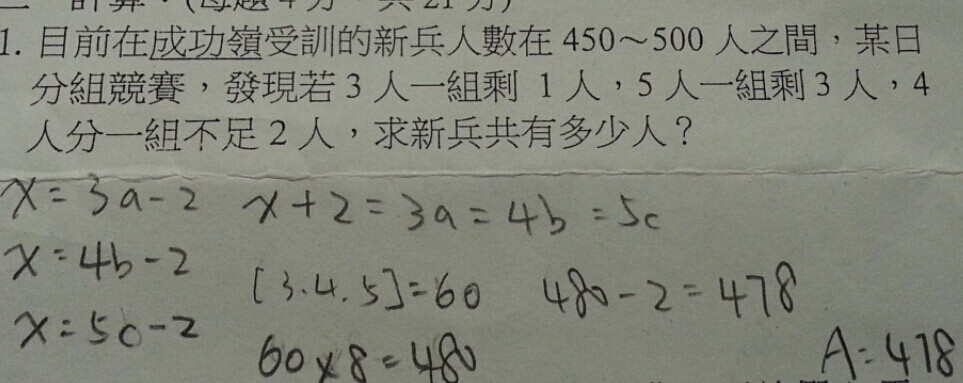 1. 目前在成功嶺受訓的新兵人數在 450～500 人之間，某日
分組競賽，發現若 3 人一組剩 1 人，5 人一組剩 3 人，4
人分一組不足 2 人，求新兵共有多少人？
x=3a-2 x+2=3a=4b=5c
x=4b-2
[3.4.5]=60 480-2=478
x=5c-2
60×8=480 A:478